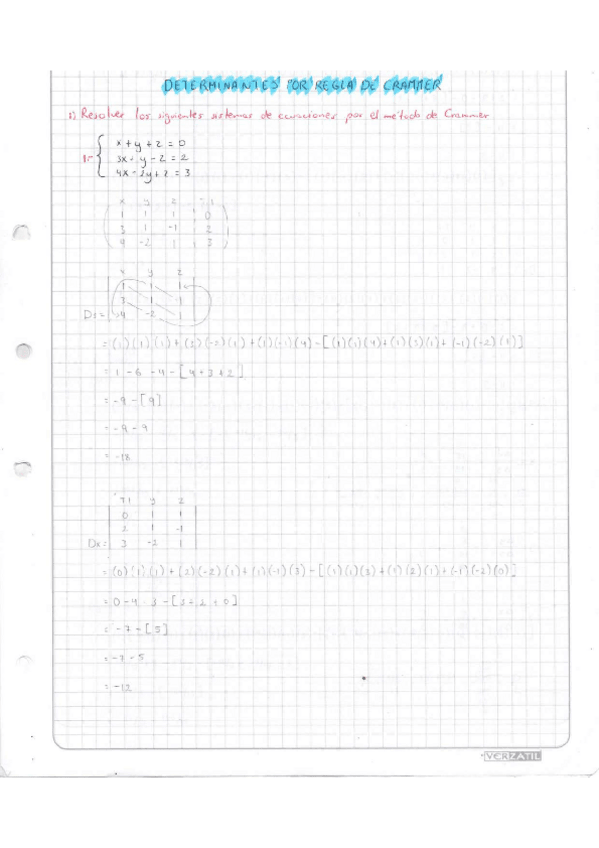 DETERMINANTES POR REGLA DE CRAMMER
1) Resolver los siguientes sistemas de ecuaciones por el método de Crammer
1- { x + y + z = 0
3x + y - z = 2
4x - 2y + z = 3
x y z TI
1 1 1 0
3 1 -1 2
4 -2 1 3
x y z
1 1 1
3 1 -1
Ds = 4 -2 1
= (1)(1)(1) + (3)(-2)(1) + (1)(-1)(4) - [(1)(1)(4) + (1)(3)(1) + (-1)(-2)(1)]
= 1 - 6 - 4 - [4 + 3 + 2]
= -9 - [9]
= -9 - 9
= -18
TI y z
0 1 1
2 1 -1
Dx = 3 -2 1
= (0)(1)(1) + (2)(-2)(1) + (1)(-1)(3) - [(1)(1)(3) + (1)(2)(1) + (-1)(-2)(0)]
= 0 - 4 - 3 - [3 + 2 + 0]
= -7 - [5]
= -7 - 5
= -12
VERZATIL